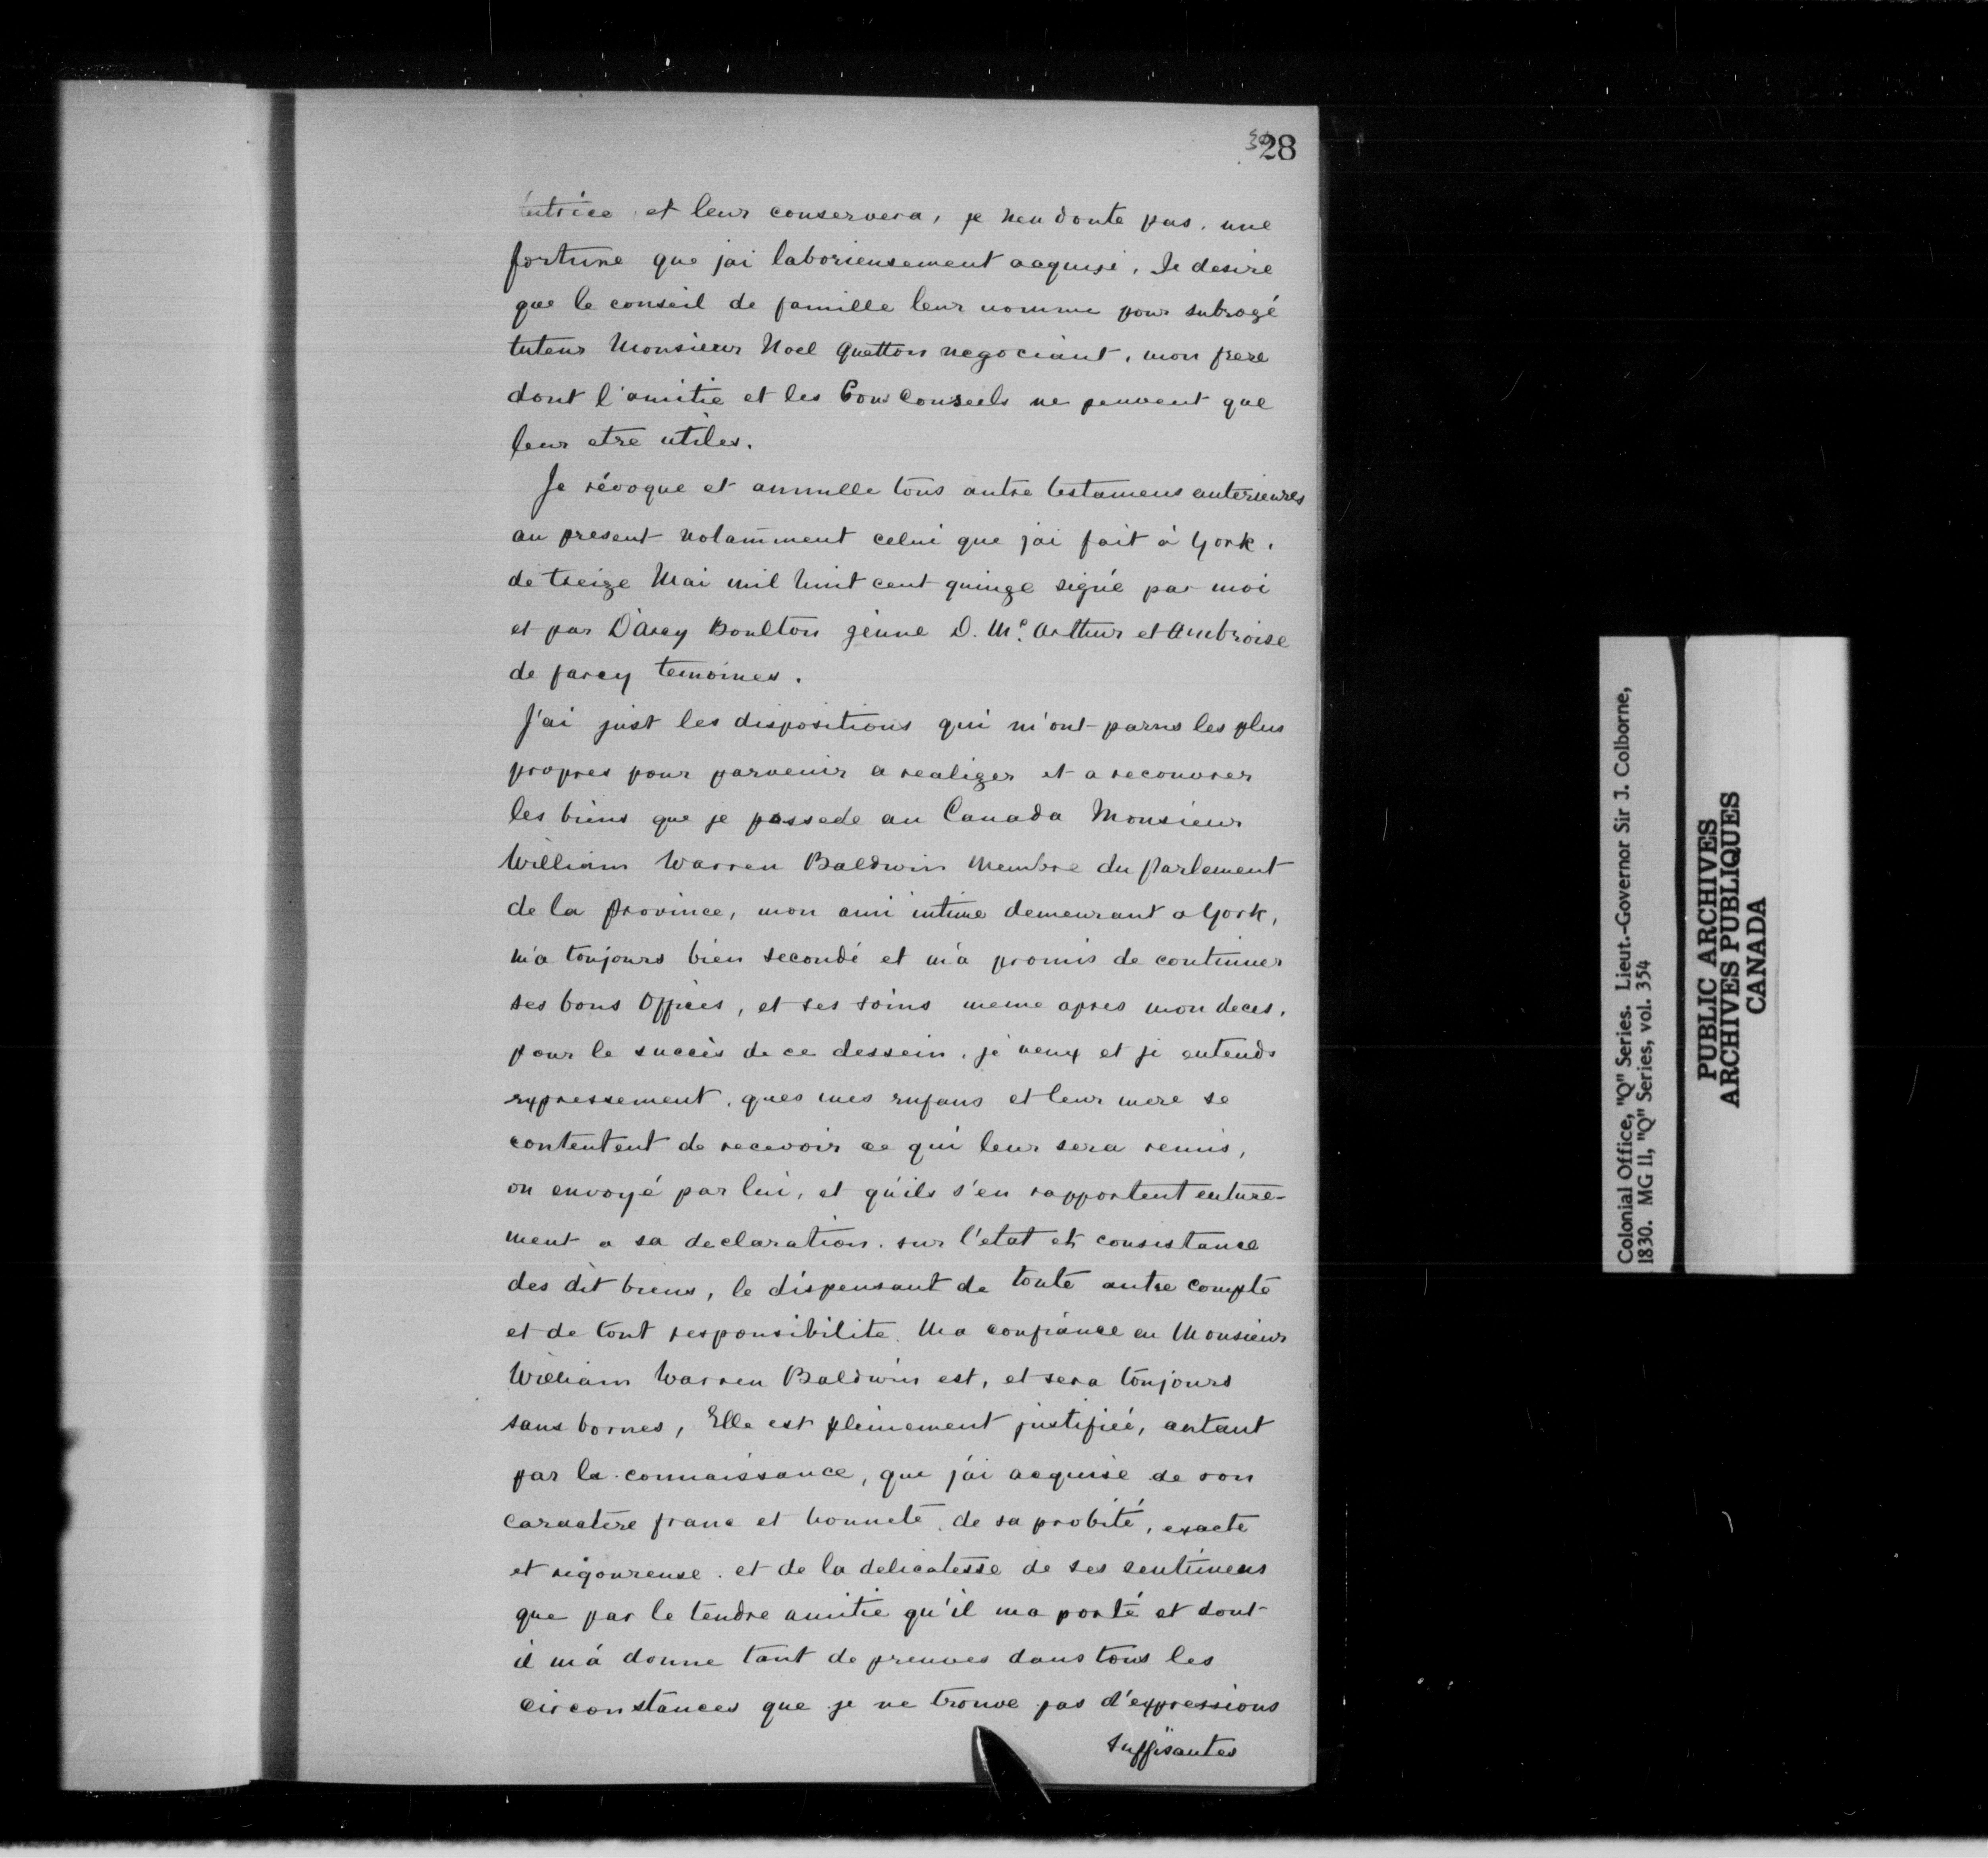 28
tutrice et leur conservera, je n'en doute pas, une
fortune que j'ai laborieusement acquise, Je desire
que le conseil de famille leur nomme pour subrogé
tuteur Monsieur Noel Quetton negociant, mon frere
dont l'amitie et les bons Conseils ne peuvent que
leur etre utiles.
Je révoque et annulle tous autre testamens anterieures
au present notamment celui que j'ai fait à York,
de treize Mai mil huit cent quinze signé par moi
et par D'Arcy Boulton jeune D. Mc. Arthur et Ambroise
de farcy temoines.
J'ai just les dispositions qui m'ont parus les plus
propres pour parvenir a realizer et a recouvrer
les biens que je possede au Canada Monsieur
William Warren Baldwin Membre du Parlement
de la Province, mon ami intime demeurant a York,
m'a toujours bien secondé et m'a promis de continuer
ses bons Offices, et ses soins meme apres mon deces,
pour le succès de ce dessein, je veux et je entends
expressement, ques mes enfans et leur mere se
contentent de recevoir ce qui leur sera remis,
ou envoyé par lui, et qu'ils s'en rapportent entiere-
ment a sa declaration, sur l'etat et consistance
des dit biens, le dispensant de toute autre compte
et de tout responsibilite. Ma confiance en Monsieur
William Warren Baldwin est, et sera toujours
sans bornes, Elle est pleinement justifiée, autant
par la connaissance, que j'ai acquise de son
caractere franc et honnete, de sa probité, exacte
et rigoureuse, et de la delicatesse de ses sentimens
que par le tendre amitie qu'il ma porté et dont
il m'a donne tant de preuves dans tous les
circonstances que je ne trouve pas d'expressions
suffisantes
Colonial Office, "Q" Series. Lieut.-Governor Sir J. Colborne,
1830. MG 11, "Q" Series, vol. 354
PUBLIC ARCHIVES
ARCHIVES PUBLIQUES
CANADA